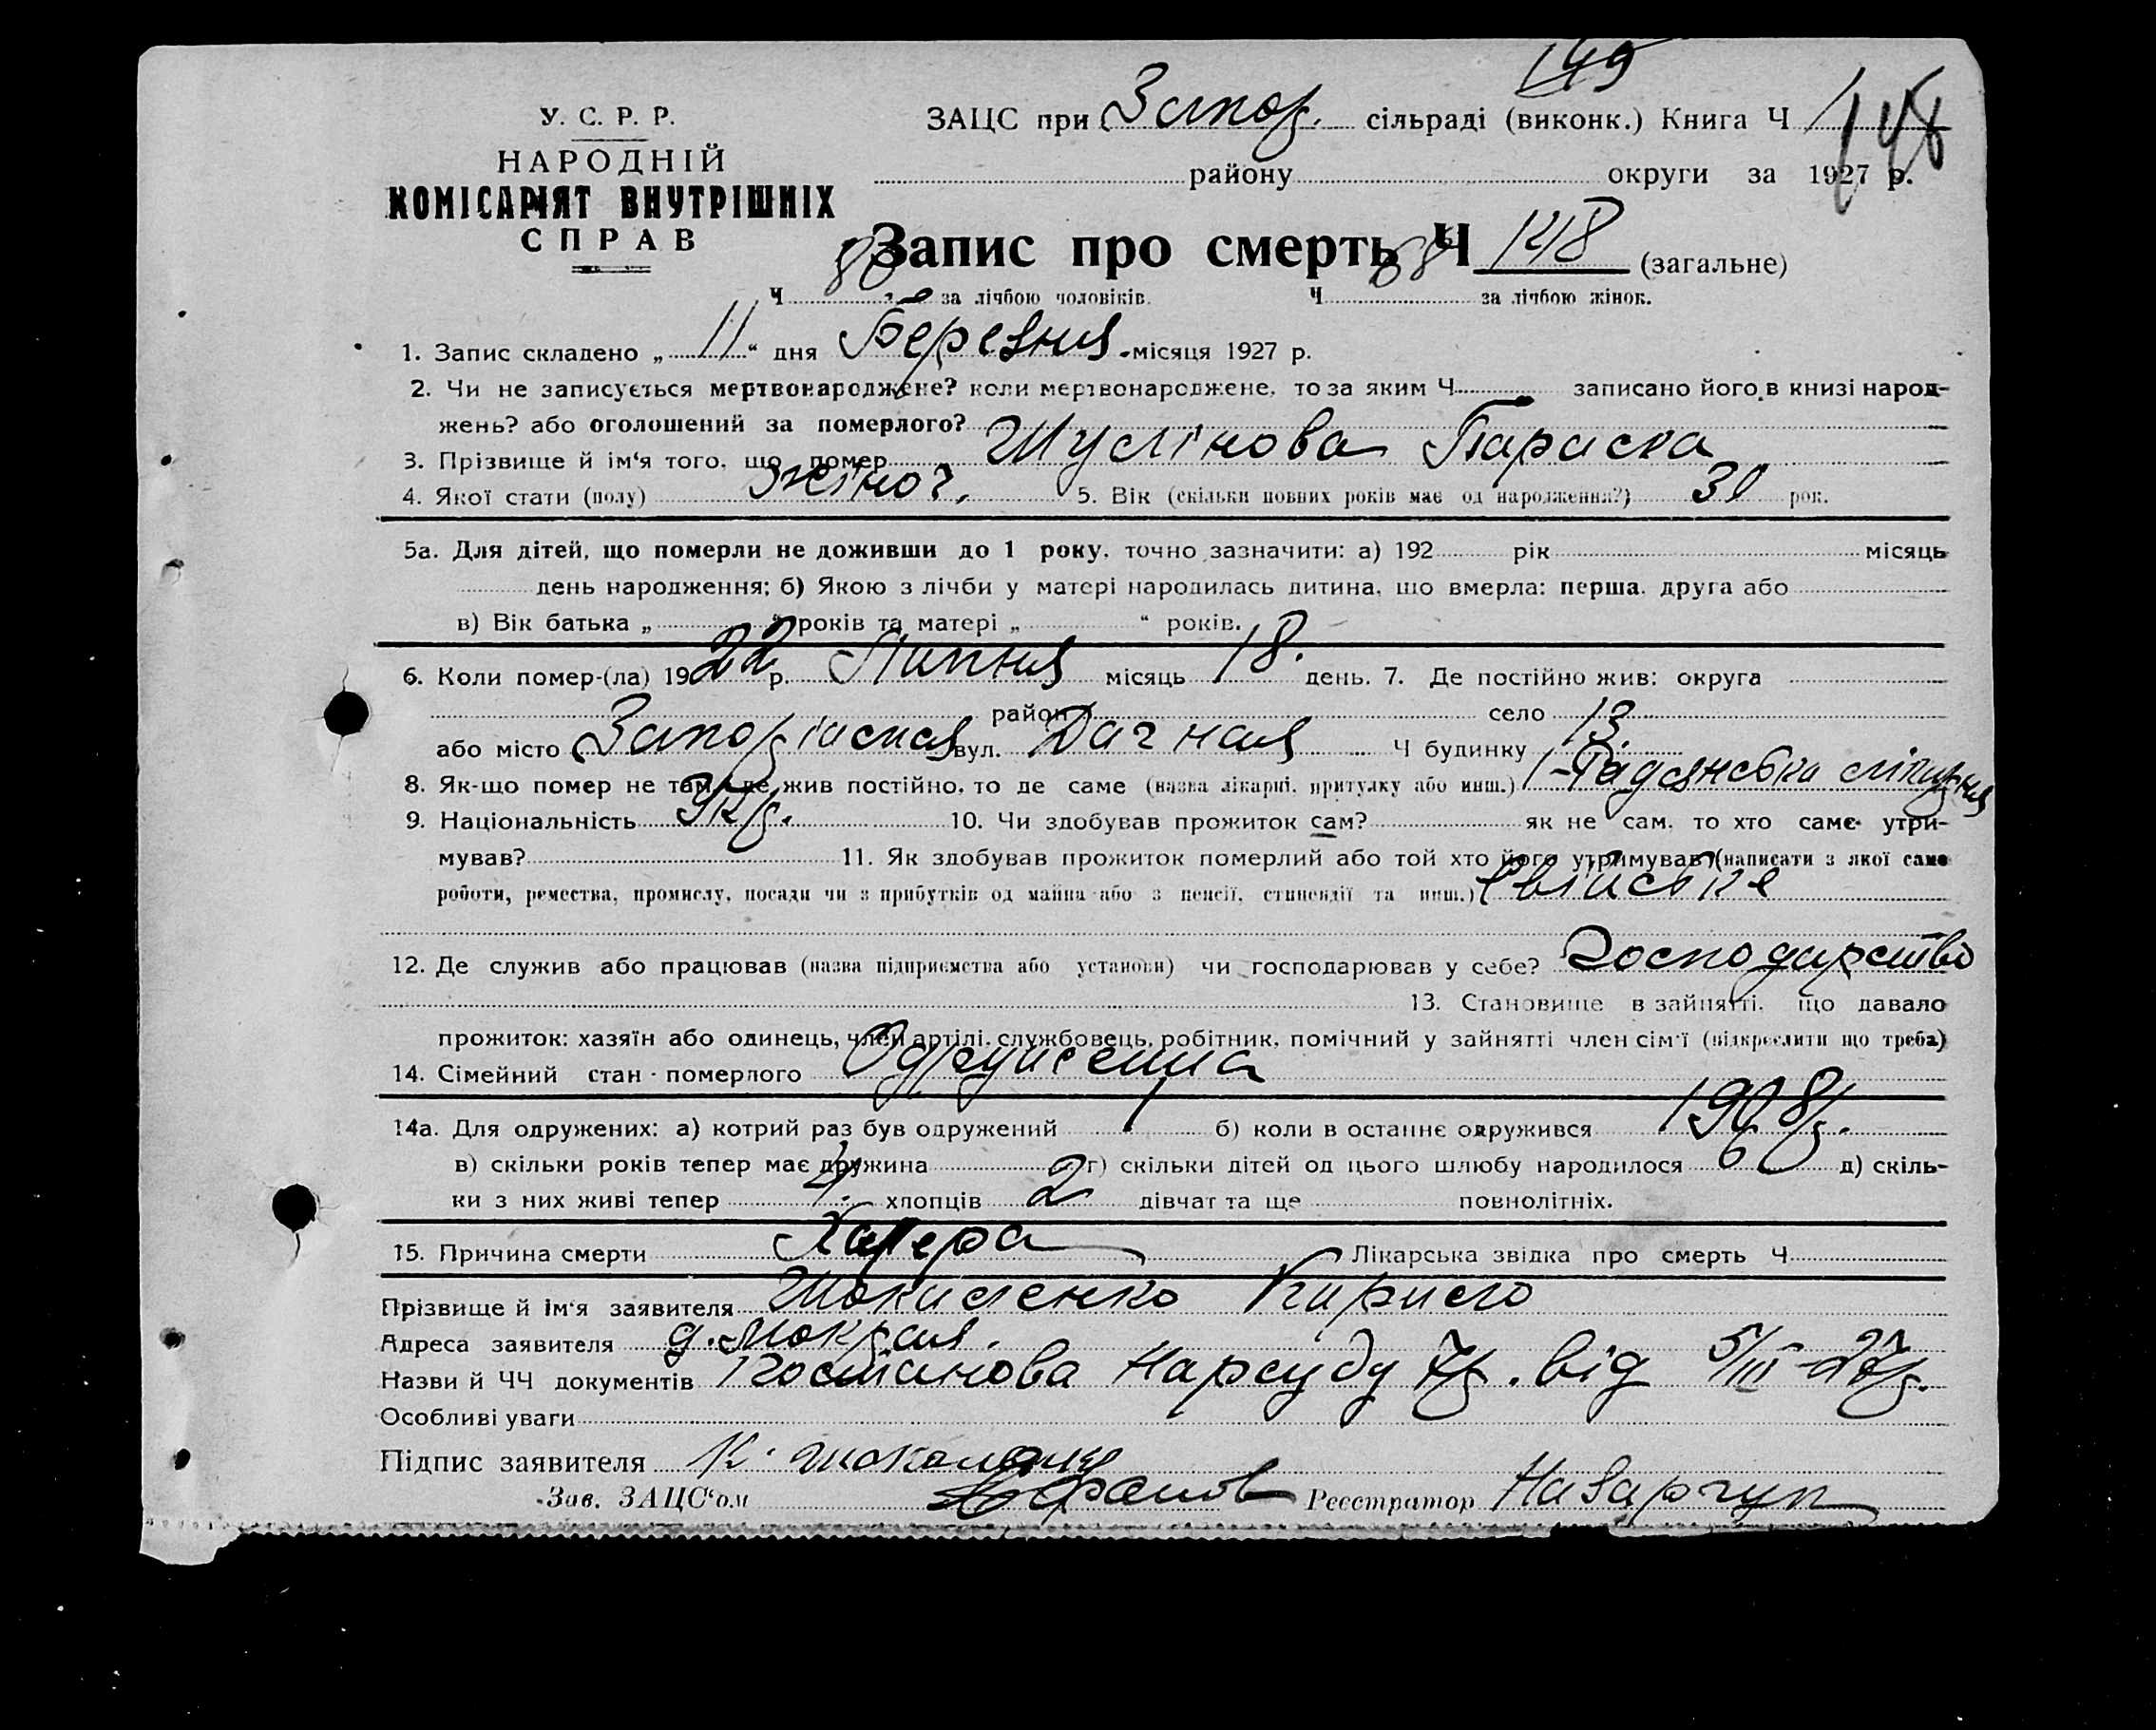 149
У. С. Р. Р.
НАРОДНІЙ
КОМІСАРІЯТ ВНУТРІШНІХ
СПРАВ
ЗАЦС при Запор. сільраді (виконк.) Книга Ч 148
району округи за 1927 р.
Запис про смерть Ч 148 (загальне)
Ч 80 за лічбою чоловіків. Ч 68 за лічбою жінок.
1. Запис складено „ 11 “ дня Березня місяця 1927 р.
2. Чи не записується мертвонароджене? коли мертвонароджене, то за яким Ч записано його в книзі народ-
жень? або оголошений за померлого?
3. Прізвище й ім‘я того, що помер Шуслінова Параска
4. Якої стати (полу) жіноч. 5. Вік (скільки повних років має од народження?) 30 рок.
5а. Для дітей, що померли не доживши до 1 року, точно зазначити: а) 192 рік місяць
день народження; б) Якою з лічби у матері народилась дитина, що вмерла: перша, друга або
в) Вік батька „ “ років та матері „ “ років.
6. Коли помер-(ла) 1922 р. Липня місяць 18. день. 7. Де постійно жив: округа
район село
або місто вул. Дачная Ч будинку 13.
8. Як-що помер не там, де жив постійно, то де саме (назва лікарні, притулку або инш.) 1-Радянська
9. Національність Укр. 10. Чи здобував прожиток сам? як не сам, то хто саме утри-
мував? 11. Як здобував прожиток померлий або той хто його утримував (написати з якої саме
роботи, ремества, промислу, посади чи з прибутків од майна або з пенсії, стипендії та инш.) Свійське
12. Де служив або працював (назва підприємства або установи) чи господарював у себе? Господарство
13. Становище в зайнятті, що давало
прожиток: хазяїн або одинець, член артілі, службовець, робітник, помічний у зайнятті член сім‘ї (підкреслити що треба)
14. Сімейний стан померлого Одружена
14а. Для одружених: а) котрий раз був одружений 1 б) коли в останнє одружився 1908р.
в) скільки років тепер має дружина г) скільки дітей од цього шлюбу народилося 6 д) скіль-
ки з них живі тепер 4. хлопців 2 дівчат та ще повнолітніх.
15. Причина смерти Халера Лікарська звідка про смерть Ч
Прізвище й ім‘я заявителя Шокиленко Кирило
Адреса заявителя д. Мокрая.
Назви й ЧЧ документів Постанова Нарсуду 7р. від 5/III-27р.
Особливі уваги
Підпис заявителя К.
Зав. ЗАЦС‘ом Реєстратор Назарчук